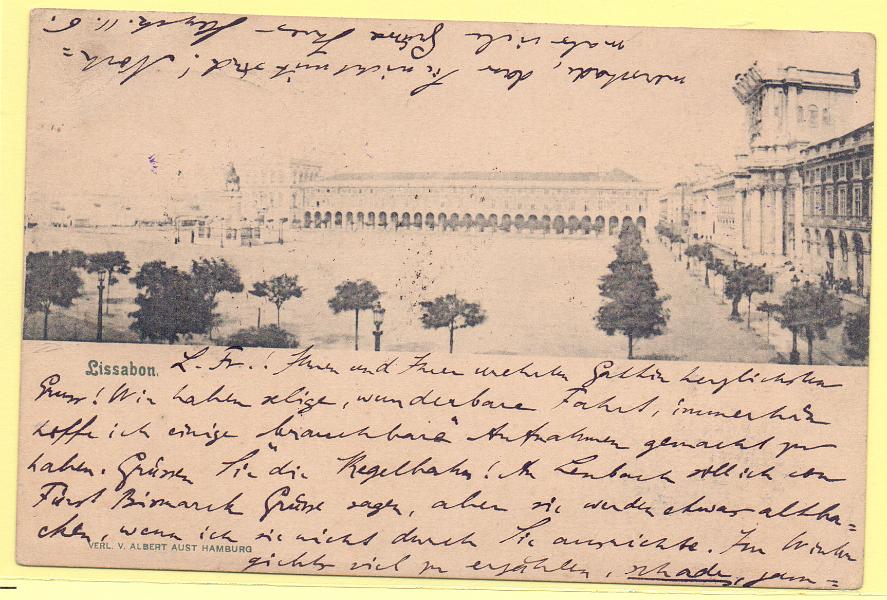 Lissabon. L. Fr.! Ihnen und Ihrer verehrten Gattin herzlichsten
Gruss! Wir haben selige, wunderbare Fahrt, immerhin
hoffe ich einige „brauchbare" Aufnahmen gemacht zu
haben. Grüssen Sie die Kegelbahn! An Lenbach soll ich von
Fürst Bismarck Grüsse sagen, aber sie werden etwas altba=
cken, wenn ich sie nicht durch Sie ausrichte. Im Winter
VERL. V. ALBERT AUST HAMBURG
giebts viel zu erzählen, schade, jam=
merschade, dass Sie nicht mit sind! Noch=
mals viele Grüsse Ihres 11. 6.